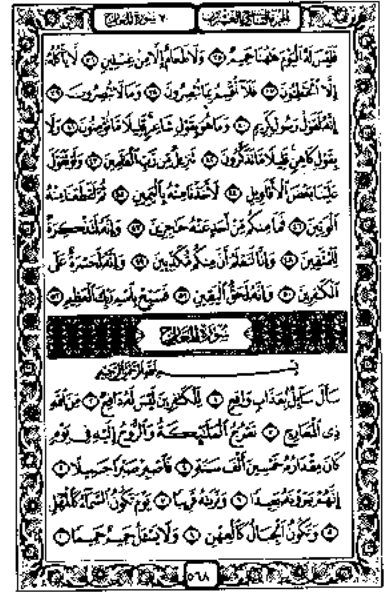 الجزء التاسع والعشرون
٧٠ سورة المعارج
فَلَيْسَ لَهُ الْيَوْمَ هَاهُنَا حَمِيمٌ ﴿٣٥﴾ وَلَا طَعَامٌ إِلَّا مِنْ غِسْلِينٍ ﴿٣٦﴾ لَا يَأْكُلُهُ
إِلَّا الْخَاطِئُونَ ﴿٣٧﴾ فَلَا أُقْسِمُ بِمَا تُبْصِرُونَ ﴿٣٨﴾ وَمَا لَا تُبْصِرُونَ ﴿٣٩﴾
إِنَّهُ لَقَوْلُ رَسُولٍ كَرِيمٍ ﴿٤٠﴾ وَمَا هُوَ بِقَوْلِ شَاعِرٍ قَلِيلًا مَا تُؤْمِنُونَ ﴿٤١﴾ وَلَا
بِقَوْلِ كَاهِنٍ قَلِيلًا مَا تَذَكَّرُونَ ﴿٤٢﴾ تَنْزِيلٌ مِنْ رَبِّ الْعَالَمِينَ ﴿٤٣﴾ وَلَوْ تَقَوَّلَ
عَلَيْنَا بَعْضَ الْأَقَاوِيلِ ﴿٤٤﴾ لَأَخَذْنَا مِنْهُ بِالْيَمِينِ ﴿٤٥﴾ ثُمَّ لَقَطَعْنَا مِنْهُ
الْوَتِينَ ﴿٤٦﴾ فَمَا مِنْكُمْ مِنْ أَحَدٍ عَنْهُ حَاجِزِينَ ﴿٤٧﴾ وَإِنَّهُ لَتَذْكِرَةٌ
لِلْمُتَّقِينَ ﴿٤٨﴾ وَإِنَّا لَنَعْلَمُ أَنَّ مِنْكُمْ مُكَذِّبِينَ ﴿٤٩﴾ وَإِنَّهُ لَحَسْرَةٌ عَلَى
الْكَافِرِينَ ﴿٥٠﴾ وَإِنَّهُ لَحَقُّ الْيَقِينِ ﴿٥١﴾ فَسَبِّحْ بِاسْمِ رَبِّكَ الْعَظِيمِ ﴿٥٢﴾
سورة المعارج
بِسْمِ اللَّهِ الرَّحْمَٰنِ الرَّحِيمِ
سَأَلَ سَائِلٌ بِعَذَابٍ وَاقِعٍ ﴿١﴾ لِلْكَافِرِينَ لَيْسَ لَهُ دَافِعٌ ﴿٢﴾ مِنَ اللَّهِ
ذِي الْمَعَارِجِ ﴿٣﴾ تَعْرُجُ الْمَلَائِكَةُ وَالرُّوحُ إِلَيْهِ فِي يَوْمٍ
كَانَ مِقْدَارُهُ خَمْسِينَ أَلْفَ سَنَةٍ ﴿٤﴾ فَاصْبِرْ صَبْرًا جَمِيلًا ﴿٥﴾
إِنَّهُمْ يَرَوْنَهُ بَعِيدًا ﴿٦﴾ وَنَرَاهُ قَرِيبًا ﴿٧﴾ يَوْمَ تَكُونُ السَّمَاءُ كَالْمُهْلِ
﴿٨﴾ وَتَكُونُ الْجِبَالُ كَالْعِهْنِ ﴿٩﴾ وَلَا يَسْأَلُ حَمِيمٌ حَمِيمًا ﴿١٠﴾
٥٦٨